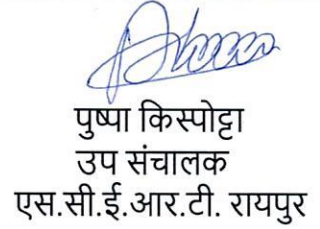 पुष्पा किस्पोट्टा
उप संचालक
एस.सी.ई.आर.टी. रायपुर